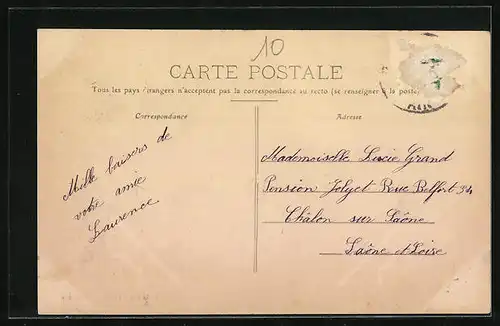 10
CARTE POSTALE
Tous les pays étrangers n'acceptent pas la correspondance au recto (se renseigner à la poste)
Correspondance
Adresse
Mille baisers de
votre amie
Laurence
Mademoiselle Lucie Grand
Pension Jolyet Rue Belfort 34
Châlon sur Saône
Saône et Loire